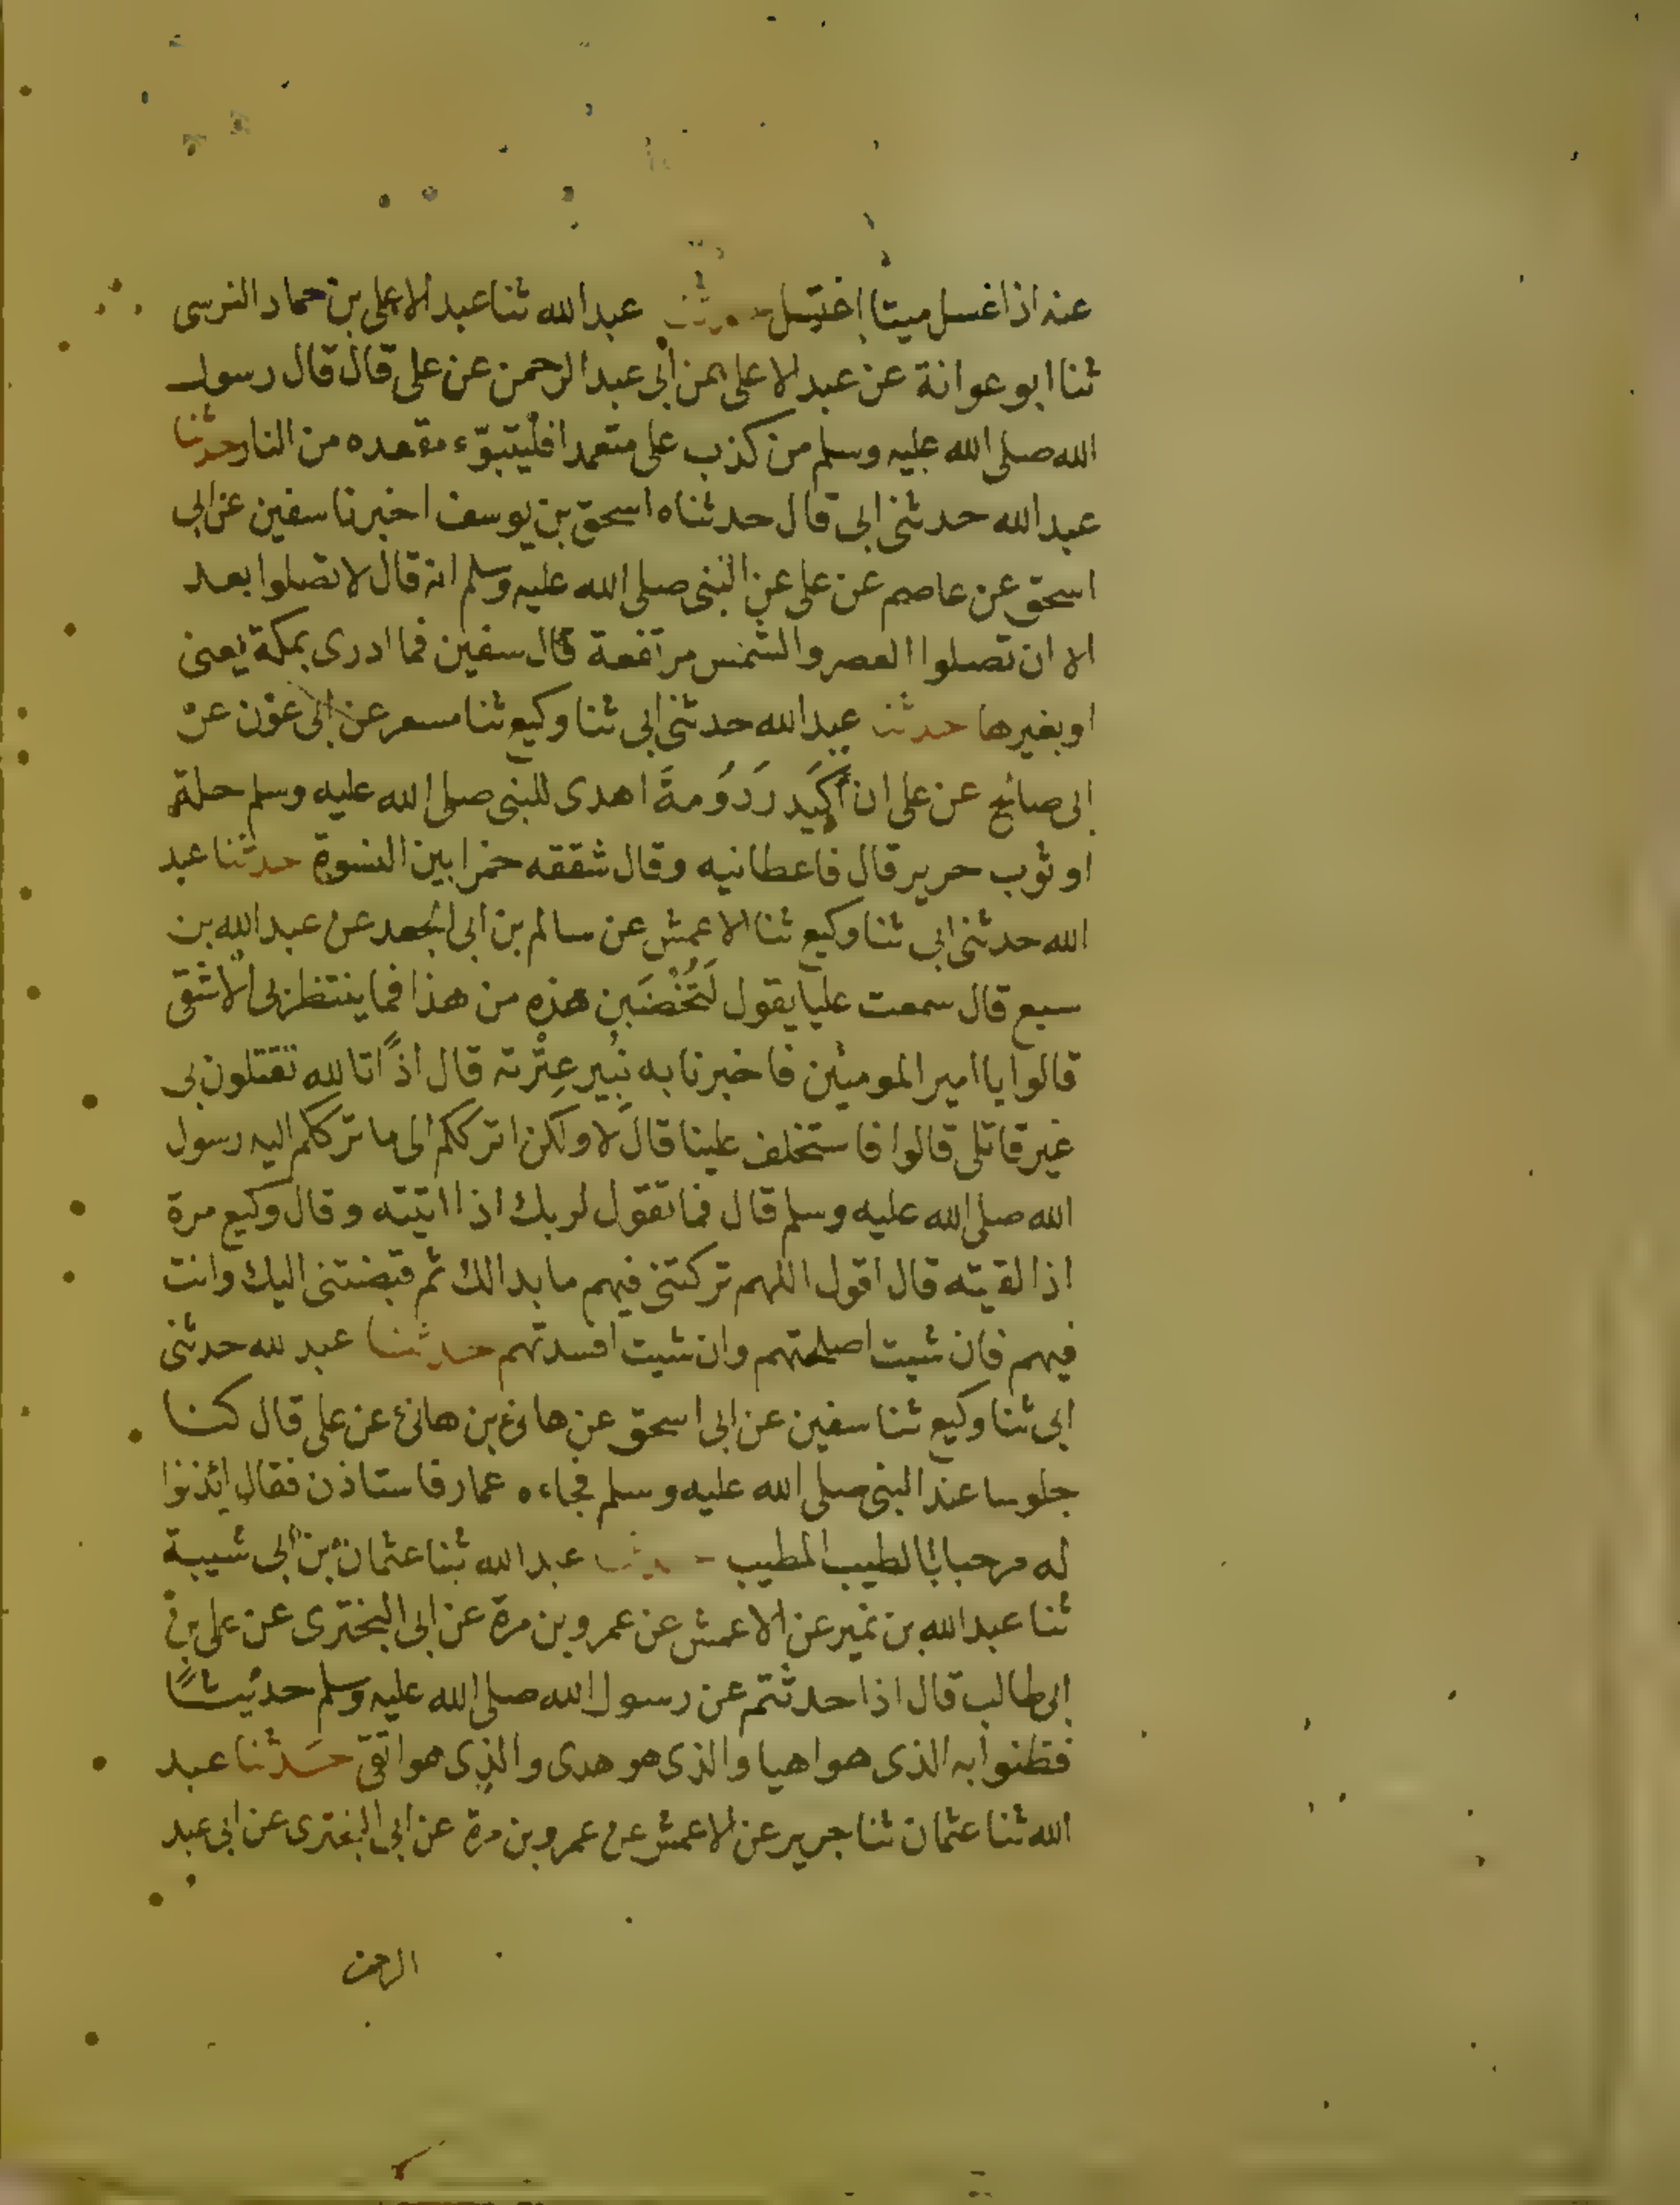 عنه اذا غسل ميتا اغتسل حدثنا عبد الله ثنا عبد الاعلى بن حماد النرسى
ثنا ابو عوانة عن عبد الاعلى عن أبى عبد الرحمن عن على قال قال رسول
الله صلى الله عليه وسلم من كذب على متعمدا فليتبوّء مقعده من النار حدثنا
عبد الله حدثنى ابى قال حدثناه اسحق بن يوسف اخبرنا سفين عن ابى
اسحق عن عاصم عن على عن النبى صلى الله عليه وسلم انه قال لا تصلوا بعد
الا ان تصلوا العصر والشمس مرتفعة قال سفين فما ادرى بمكة يعنى
او بغيرها حدثنا عبد الله حدثنى ابى ثنا وكيع ثنا مسعر عن ابى عون عن
ابى صالح عن على ان أُكَيدر دَوُمةَ اهدى للنبى صلى الله عليه وسلم حلة
او ثوب حرير قال فاعطانيه وقال شققه خمرا بين النسوة حدثنا عبد
الله حدثنى ابى ثنا وكيع ثنا الاعمش عن سالم بن ابى الجعد عن عبد الله بن
سبع قال سمعت عليا يقول لَتُخْضَبَن هذه من هذا فما ينتظر بى الاشقى
قالوا يا امير المومنين فاخبرنا به نُبير عِتْرته قال اذًا تالله تقتلون بى
غير قاتلى قالوا فاستخلف علينا قال لا ولكن اترككم الى ما ترككم اليه رسول
الله صلى الله عليه وسلم قال فما تقول لربك اذا اتيته وقال وكيع مرة
اذا لقيته قال اقول اللهم تركتنى فيهم ما بدالك ثم قبضتنى اليك وانت
فيهم فان شيت اصلحتهم وان شيت افسدتهم حدثنا عبد لله حدثنى
ابى ثنا وكيع ثنا سفين عن ابى اسحق عن هانئ بن هانئ عن على قال كنا
جلوسا عند النبى صلى الله عليه وسلم فجاءه عمار فاستاذن فقال ائذنوا
له مرحبا بالطيب المطيب حدثنا عبد الله ثنا عثمان بن أبى شيبة
ثنا عبد الله بن نمير عن الاعمش عن عمرو بن مرة عن ابى البخترى عن على بن
ابى طالب قال اذا حدثتم عن رسول الله صلى الله عليه وسلم حديثًا
فظنوا به الذى هو اهيا والذى هو هدى والذى هو اتقى حدثنا عبد
الله ثنا عثمان ثنا جرير عن الاعمش عن عمرو بن مرة عن ابى البخترى عن ابى عبد
الرحمن